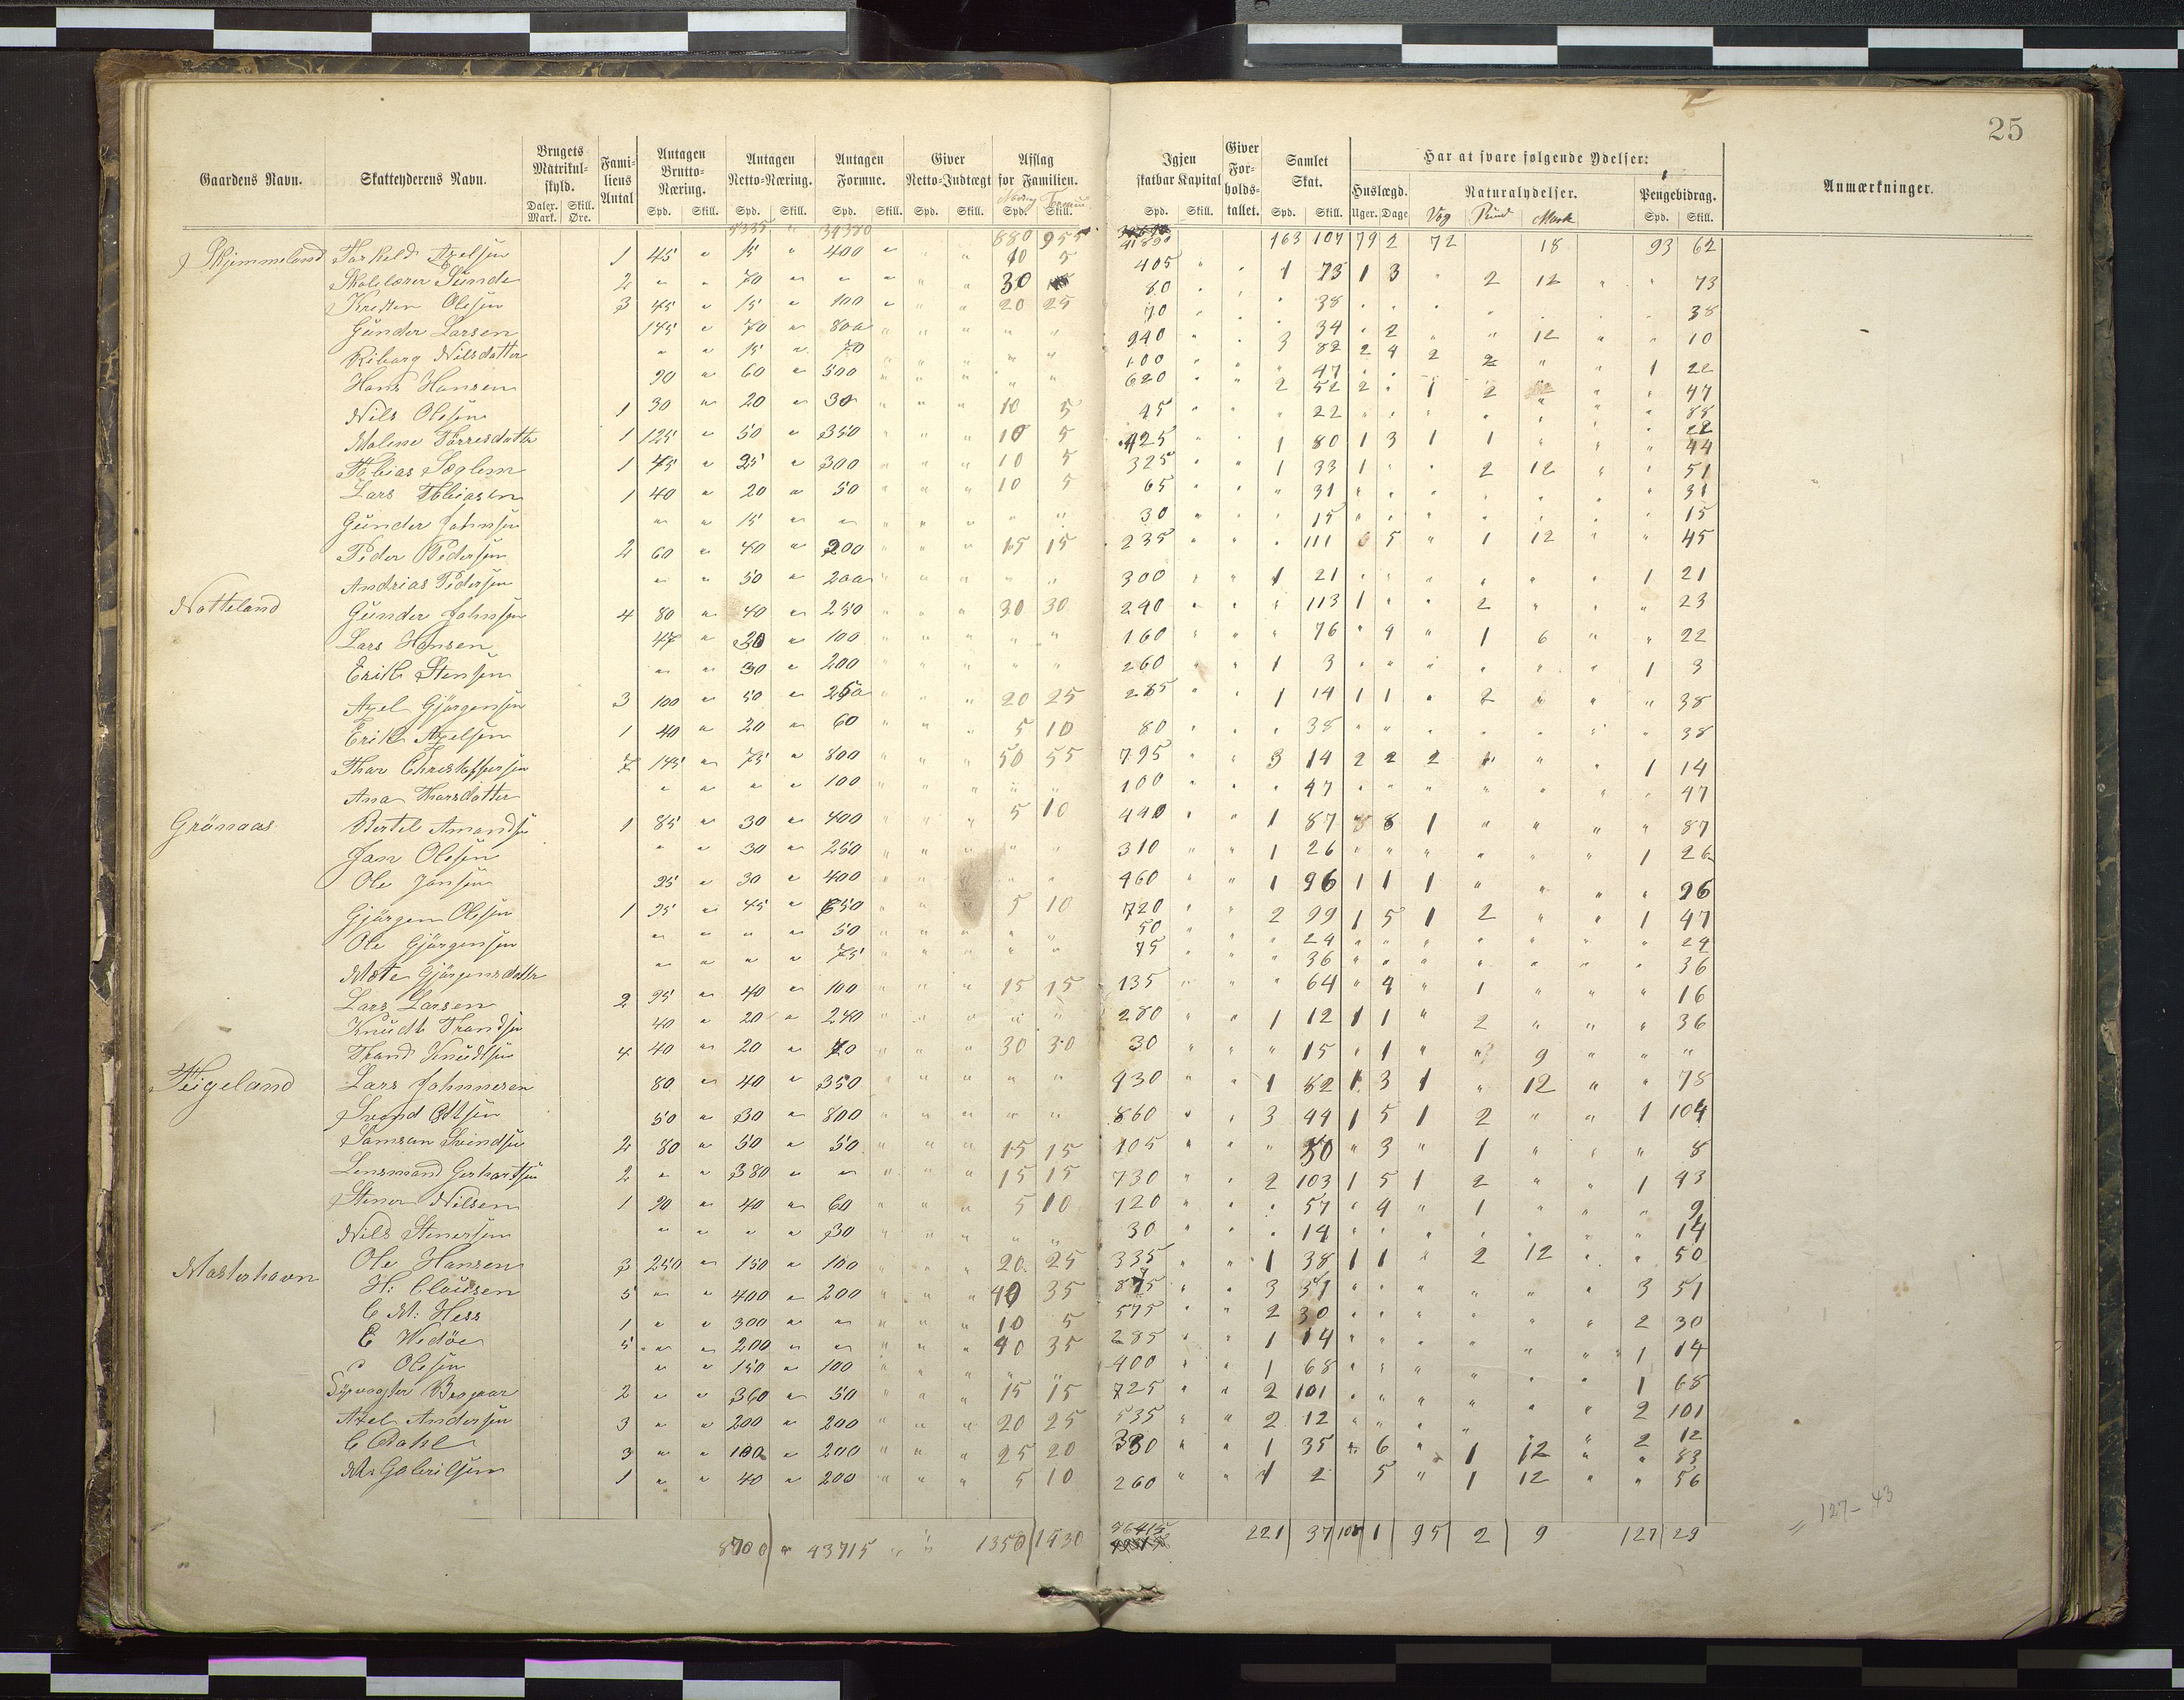 25
Gaardens Navn. Skatteyderens Navn. Brugets Matrikulskyld. Familiens Antal Antagen Brutto-Næring. Antagen Netto-Næring. Antagen Formue. Giver Netto-Indtægt Afslag for Familien. Igjen skatbar Kapital Giver Forholdstallet. Samlet Skat. Har at svare følgende Ydelser: Anmærkninger.
Huslægd. Naturalydelser. Pengebidrag.
Daler. Mark. Skill. Øre. Spd. Skill. Spd. Skill. Spd. Skill. Spd. Skill. Spd. Skill. Spd. Skill. Spd. Skill. Uger. Dage Vog Pund Mark Spd. Skill.
5335 " 34380 880 955 41890 163 107 79 2 72 18 93 62
Skjemmeland Torkeld Axelsen 1 45 " 15 " 400 " " " 10 5 405 " " 1 73 1 3 " 2 12 " " 73
Skolelærer Sunde 2 " " 70 " " " " " 30 80 " " " 38 " " " " " " " 38
Kresten Olesen 3 45 " 15 " 100 " " " 20 25 70 " " " 34 " 2 " " 12 " " 10
Gunder Larsen 145 " 70 " 800 " " " " " 940 " " 3 82 2 4 2 2 " " 1 22
Kiborg Nilsdatter " " 15 " 70 " " " " " 100 " " " 47 " " " " " " " 47
Hans Hansen 90 " 60 " 500 " " " " " 620 " " 2 52 2 " 1 2 " " " 88
Nils Olesen 1 30 " 20 " 30 " " " 10 5 45 " " " 22 " " " " " " " 22
Malene Torresdatter 1 125 " 50 " 350 " " " 10 5 425 " " 1 80 1 3 1 1 " " " 44
Tobias Soglem 1 45 " 25 " 300 " " " 10 5 325 " " 1 33 1 " " 2 12 " " 51
Lars Tobiasen 1 40 " 20 " 50 " " " 10 5 65 " " " 31 " " " " " " " 31
Gunder Johnsen " " 15 " " " " " " " 30 " " " 15 " " " " " " " 15
Peder Pedersen 2 60 " 40 " 200 " " " 15 15 235 " " " 111 " 5 " 1 12 " " 45
Andrias Pedersen " " 50 " 200 " " " " " 300 " " 1 21 " " " " " " 1 21
Notteland Gunder Johnsen 4 80 " 40 " 250 " " " 30 30 240 " " " 113 1 " " 2 " " " 23
Lars Hansen 47 " 30 " 100 " " " " " 160 " " " 76 " 4 " 1 6 " " 22
Erik Stensen " " 30 " 200 " " " " " 260 " " 1 3 " " " " " " 1 3
Axel Gjørgensen 3 100 " 50 " 250 " " " 20 25 285 " " 1 14 1 1 " 2 " " " 38
Erik Axelsen 1 40 " 20 " 60 " " " 5 10 80 " " " 38 " " " " " " " 38
Thor Christoffersen 7 145 " 75 " 800 " " " 50 55 795 " " 3 14 2 2 2 " " " 1 14
Ana Thorsdatter " " " " 100 " " " " " 100 " " " 47 " " " " " " " 47
Grönaas Bertel Amandsen 1 85 " 30 " 400 " " " 5 10 440 " " 1 87 " 8 1 " " " " 87
Jan Olesen " " 30 " 250 " " " " " 310 " " 1 26 " " " " " " 1 26
Ole Jansen 95 " 30 " 400 " " " " " 460 " " 1 96 1 1 1 " " " " 96
Gjørgen Olesen 1 95 " 45 " 650 " " " 5 10 720 " " 2 99 1 5 1 2 " " 1 47
Ole Gjørgensen " " " " 50 " " " " " 50 " " " 24 " " " " " " " 24
Mete Gjørgensdatter " " " " 75 " " " " " 75 " " " 36 " " " " " " " 36
Lars Larsen 2 95 " 40 " 100 " " " 15 15 135 " " " 64 " 4 " 1 " " " 16
Knudt Trondsen 40 " 20 " 240 " " " " " 280 " " 1 12 1 1 " 2 " " " 36
Trond Knudtsen 4 40 " 20 " 70 " " " 30 30 30 " " " 15 " 1 " " 9 " " "
Teigeland Lars Johnnesen 80 " 40 " 350 " " " " " 430 " " 1 82 1 3 1 " 12 " " 78
Svend Ottsen 50 " 30 " 800 " " " " " 860 " " 3 44 1 5 1 2 " " 1 104
Samson Svendsen 2 80 " 50 " 50 " " " 15 15 105 " " " 50 " 3 " 1 " " " 8
Lensmand Gerhartsen 2 " " 380 " " " " " 15 15 730 " " 2 103 1 5 1 2 " " 1 43
Stener Nilsen 1 90 " 40 " 60 " " " 5 10 120 " " " 57 " 4 " 1 " " " 9
Nils Stenersen " " " " 30 " " " " " 30 " " " 14 " " " " " " " 14
Mosterhavn Ole Hansen 3 250 " 150 " 100 " " " 20 25 335 " " 1 38 1 1 " 2 12 " " 50
H: Clausen 5 " " 400 " 200 " " " 40 35 875 " " 3 51 " " " " " " 3 51
C M: Hess 1 " " 300 " " " " " 10 5 575 " " 2 30 " " " " " " 2 30
E Wedöe 5 " " 200 " " " " " 40 35 285 " " 1 14 " " " " " " 1 14
Olesen " " 150 " 100 " " " " " 400 " " 1 68 " " " " " " 1 68
2 " " 360 " 50 " " " 15 15 725 " " 2 101 " " " " " " 2 101
Axel Andersen 3 " " 200 " 200 " " " 20 25 535 " " 2 12 " " " " " " 2 12
C Dahl 3 " " 100 " 200 " " " 25 20 330 " " 1 35 " 6 " 1 12 " " 83
M: Gabrielsen 1 " " 40 " 200 " " " 5 10 260 " " 1 2 5 " 1 12 " " 56
8700 " 43715 " " 1350 1430 221 37 1 95 2 9 127 29
127-43